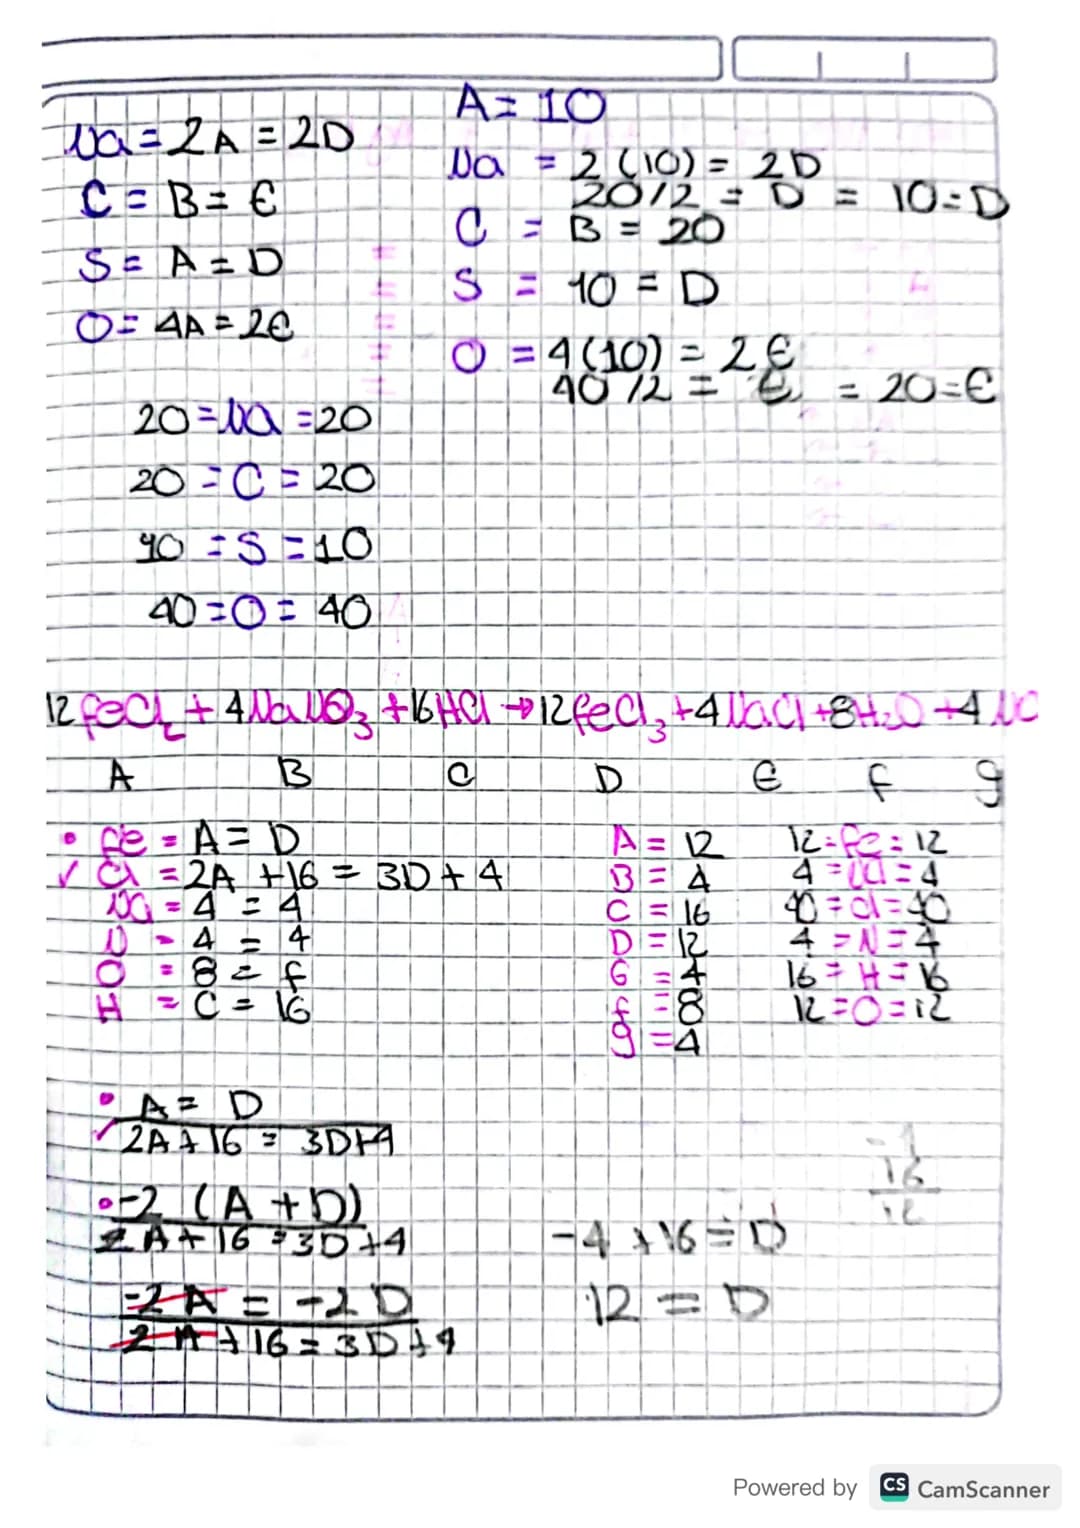 Na = 2A = 2D
C = B = E
S = A = D
O = 4A = 2E
A = 10
Na = 2(10) = 2D
20/2 = D = 10 = D
C = B = 20
S = 10 = D
O = 4(10) = 2E
40/2 = E = 20 = E
20 = Na = 20
20 = C = 20
10 = S = 10
40 = O = 40
12 FeCl2 + 4 NaNO3 + 16 HCl → 12 FeCl3 + 4 NaCl + 8 H2O + 4 NO
A B C D E F g
• Fe = A = D
✓ Cl = 2A + 16 = 3D + 4
Na = 4 = 4
N = 4 = 4
O = 8 = f
H = C = 16
A = 12
B = 4
C = 16
D = 12
E = 4
f = 8
g = 4
12 = Fe = 12
4 = Na = 4
40 = Cl = 40
4 = N = 4
16 = H = 16
12 = O = 12
• A = D
✓ 2A + 16 = 3D + 4
• -2 (A + D)
2A + 16 = 3D + 4
-2A = -2D
2A + 16 = 3D + 4
-4 + 16 = D
12 = D
Powered by CS CamScanner